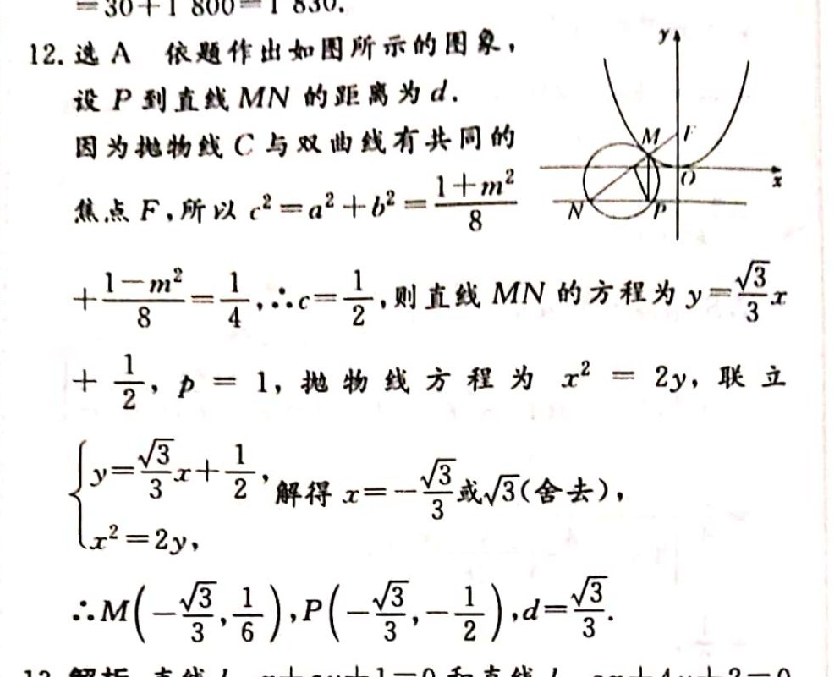 =30+1 800=1 830.
12. 选 A 依题作出如图所示的图象,
设 P 到直线 MN 的距离为 d.
因为抛物线 C 与双曲线有共同的
焦点 F,所以 c²=a²+b²=\frac{1+m²}{8}
+\frac{1-m²}{8}=\frac{1}{4},∴c=\frac{1}{2},则直线 MN 的方程为 y=\frac{√3}{3}x
+\frac{1}{2}, p = 1, 抛物线方程为 x² = 2y, 联立
{y=\frac{√3}{3}x+\frac{1}{2},
x²=2y,
解得 x=-\frac{√3}{3}或√3(舍去),
∴M(-\frac{√3}{3},\frac{1}{6}),P(-\frac{√3}{3},-\frac{1}{2}),d=\frac{√3}{3}.
y
M F
O x
N P